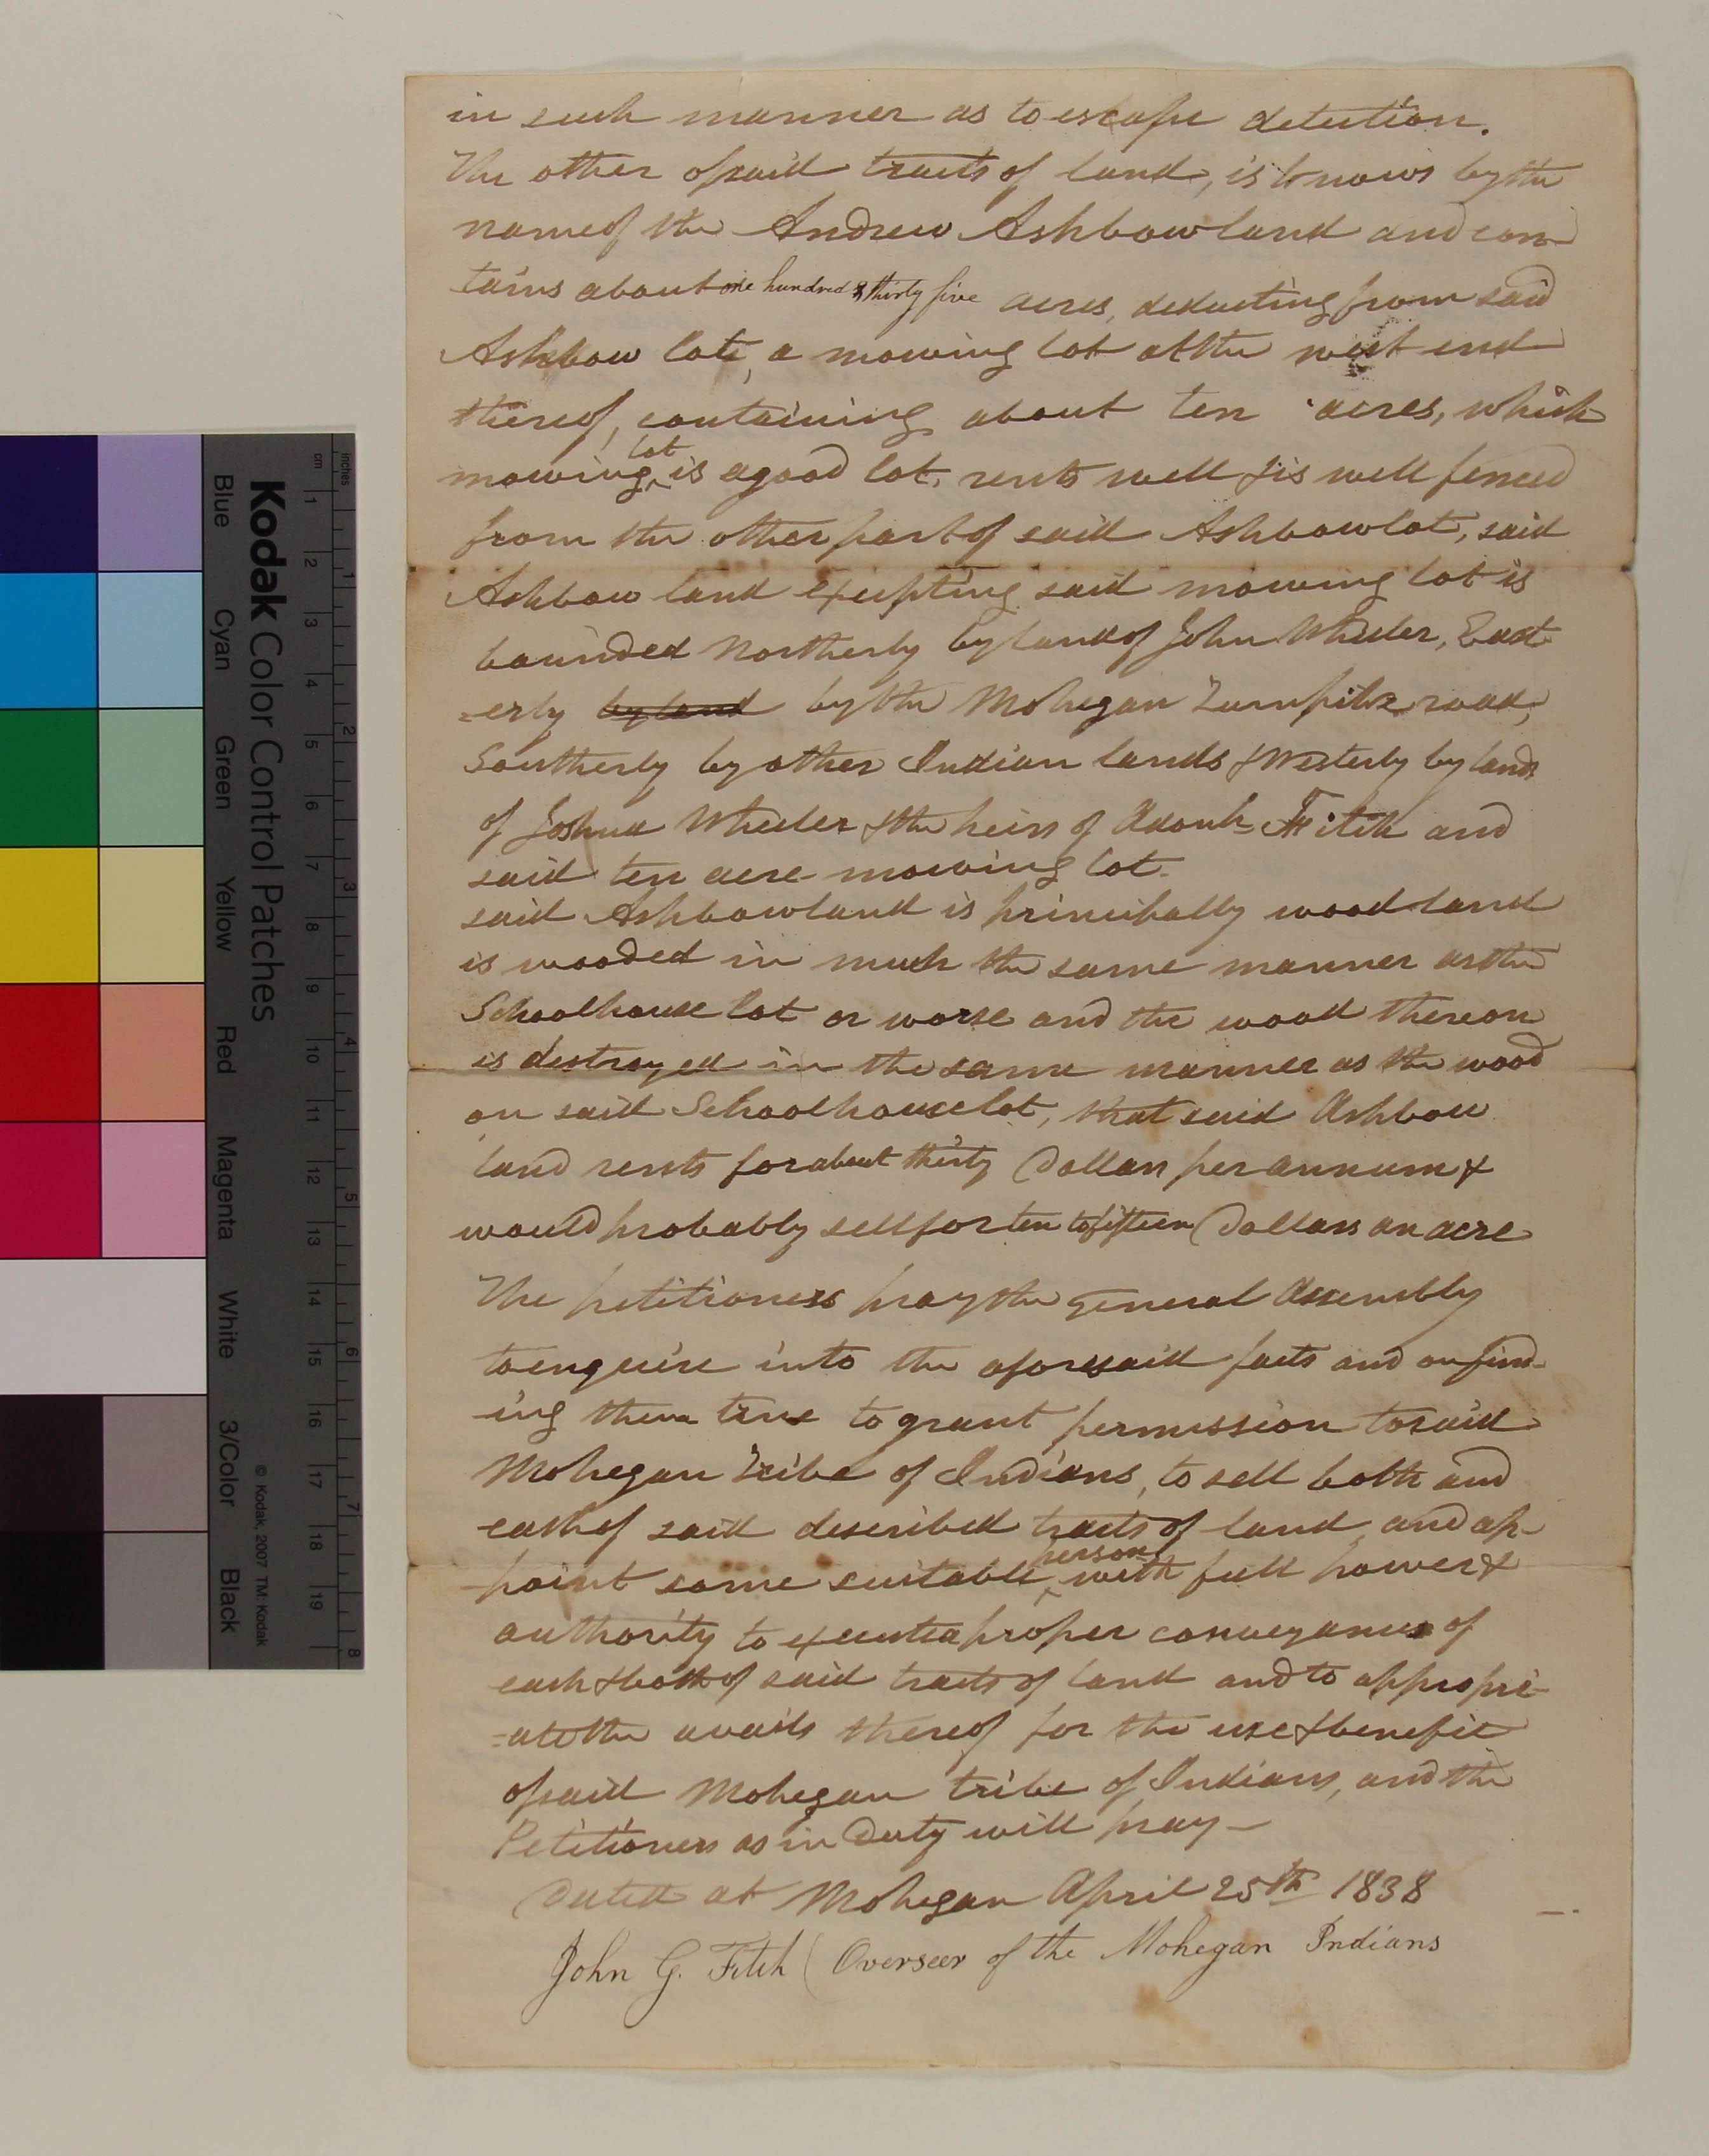 in such manner as to escape detection.
The other of said tracts of land, is known by the
name of the Andrew Ashbow land and con-
tains about one hundred & thirty five acres, deducting from said
Ashbow lot, a mowing lot at the west end
thereof, containing about ten acres, which
mowing lot is a good lot, rents well & is well fenced
from the other part of said Ashbow lot, said
Ashbow land excepting said mowing lot is
bounded Northerly by land of John Wheeler, East
=erly by land by the Mohegan Turnpike road,
Southerly by other Indian lands & Westerly by lands
of Joshua Wheeler & the heirs of Fitch and
said ten acre mowing lot.
said Ashbow land is principally wood land
is wooded in much the same manner as the
Schoolhouse lot or worse and the wood thereon
is destroyed in the same manner as the wood
on said Schoolhouse lot, that said Ashbow
land rents for about thirty Dollars per annum &
would probably sell for ten to fifteen Dollars an acre
The petitioners pray the General Assembly
to enquire into the aforesaid facts and on find-
ing them true to grant permission to said
Mohegan Tribe of Indians, to sell both and
each of said described tracts of land and ap-
point some suitable person with full power &
authority to execute a proper conveyance of
each & both of said tracts of land and to appropri-
=ate the avails thereof for the use & benefit
of said Mohegan tribe of Indians, and the
Petitioners as in Duty will pray—
Dated at Mohegan April 25th 1838
John G. Fitch ( Overseer of the Mohegan Indians
Kodak Color Control Patches
© Kodak, 2007 TM: Kodak
Blue Cyan Green Yellow Red Magenta White 3/Color Black
cm 1 2 3 4 5 6 7 8 9 10 11 12 13 14 15 16 17 18 19
inches 1 2 3 4 5 6 7 8